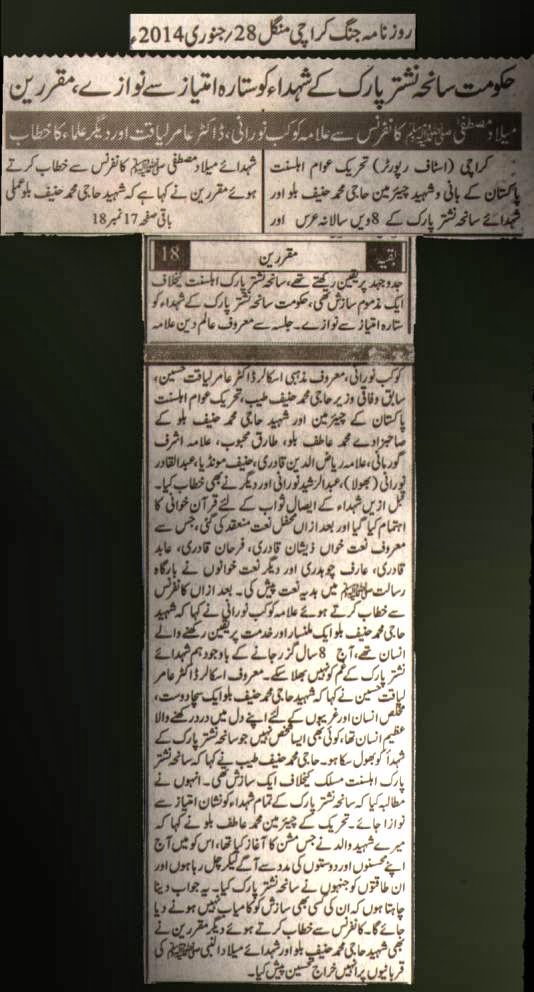 روزنامہ جنگ کراچی منگل 28/جنوری 2014ء
حکومت سانحہ نشتر پارک کے شہداء کو ستارہ امتیاز سے نوازے، مقررین
میلاد مصطفیٰ ﷺ کانفرنس سے علامہ کوکب نورانی، ڈاکٹر عامر لیاقت اور دیگر علماء کا خطاب
کراچی (اسٹاف رپورٹر) تحریک عوام اہلسنت
پاکستان کے بانی و شہید چیئرمین حاجی محمد حنیف بلو اور
شہدائے سانحہ نشتر پارک کے 8ویں سالانہ عرس اور
شہدائے میلاد مصطفیٰ ﷺ کانفرنس سے خطاب کرتے
ہوئے مقررین نے کہا ہے کہ شہید حاجی محمد حنیف بلو عملی
باقی صفحہ 17 نمبر 18
بقیہ مقررین 18
جدوجہد پر یقین رکھتے تھے، سانحہ نشتر پارک اہلسنت کیخلاف
ایک مذموم سازش تھی، حکومت سانحہ نشتر پارک کے شہداء کو
ستارہ امتیاز سے نوازے۔ جلسہ سے معروف عالم دین علامہ
کوکب نورانی، معروف مذہبی اسکالر ڈاکٹر عامر لیاقت حسین،
سابق وفاقی وزیر حاجی محمد حنیف طیب، تحریک عوام اہلسنت
پاکستان کے چیئرمین اور شہید حاجی محمد حنیف بلو کے
صاحبزادے محمد عاطف بلو، طارق محبوب، علامہ اشرف
گورمانی، علامہ ریاض الدین قادری، حنیف مونڈیا، عبدالقادر
نورانی (بھولا)، عبدالرشید نورانی اور دیگر نے بھی خطاب کیا۔
قبل ازیں شہداء کے ایصال ثواب کے لئے قرآن خوانی کا
اہتمام کیا گیا اور بعد ازاں محفل نعت منعقد کی گئی، جس سے
معروف نعت خواں ذیشان قادری، فرحان قادری، عابد
قادری، عارف چوہدری اور دیگر نعت خوانوں نے بارگاہ
رسالت ﷺ میں ہدیہ نعت پیش کی۔ بعد ازاں کانفرنس
سے خطاب کرتے ہوئے علامہ کوکب نورانی نے کہا کہ شہید
حاجی محمد حنیف بلو ایک ملنسار اور خدمت پر یقین رکھنے والے
انسان تھے، آج 8 سال گزر جانے کے باوجود ہم شہدائے
نشتر پارک کے غم کو نہیں بھلا سکے۔ معروف اسکالر ڈاکٹر عامر
لیاقت حسین نے کہا کہ شہید حاجی محمد حنیف بلو ایک سچا دوست،
مخلص انسان اور غریبوں کے لئے اپنے دل میں درد رکھنے والا
عظیم انسان تھا، کوئی بھی ایسا شخص نہیں جو سانحہ نشتر پارک کے
شہداء کو بھول سکا ہو۔ حاجی محمد حنیف طیب نے کہا کہ سانحہ نشتر
پارک اہلسنت مسلک کیخلاف ایک سازش تھی۔ انہوں نے
مطالبہ کیا کہ سانحہ نشتر پارک کے تمام شہداء کو نشان امتیاز سے
نوازا جائے۔ تحریک کے چیئرمین محمد عاطف بلو نے کہا کہ
میرے شہید والد نے جس مشن کا آغاز کیا تھا، اس کو میں آج
اپنے محسنوں اور دوستوں کی مدد سے آگے لیکر چل رہا ہوں اور
ان طاقتوں کو جنہوں نے سانحہ نشتر پارک کیا۔ یہ جواب دینا
چاہتا ہوں کہ ان کی کسی بھی سازش کو کامیاب نہیں ہونے دیا
جائے گا۔ کانفرنس سے خطاب کرتے ہوئے دیگر مقررین نے
بھی شہید حاجی محمد حنیف بلو اور شہدائے میلاد النبی ﷺ کی
قربانیوں پر انہیں خراج تحسین پیش کیا۔